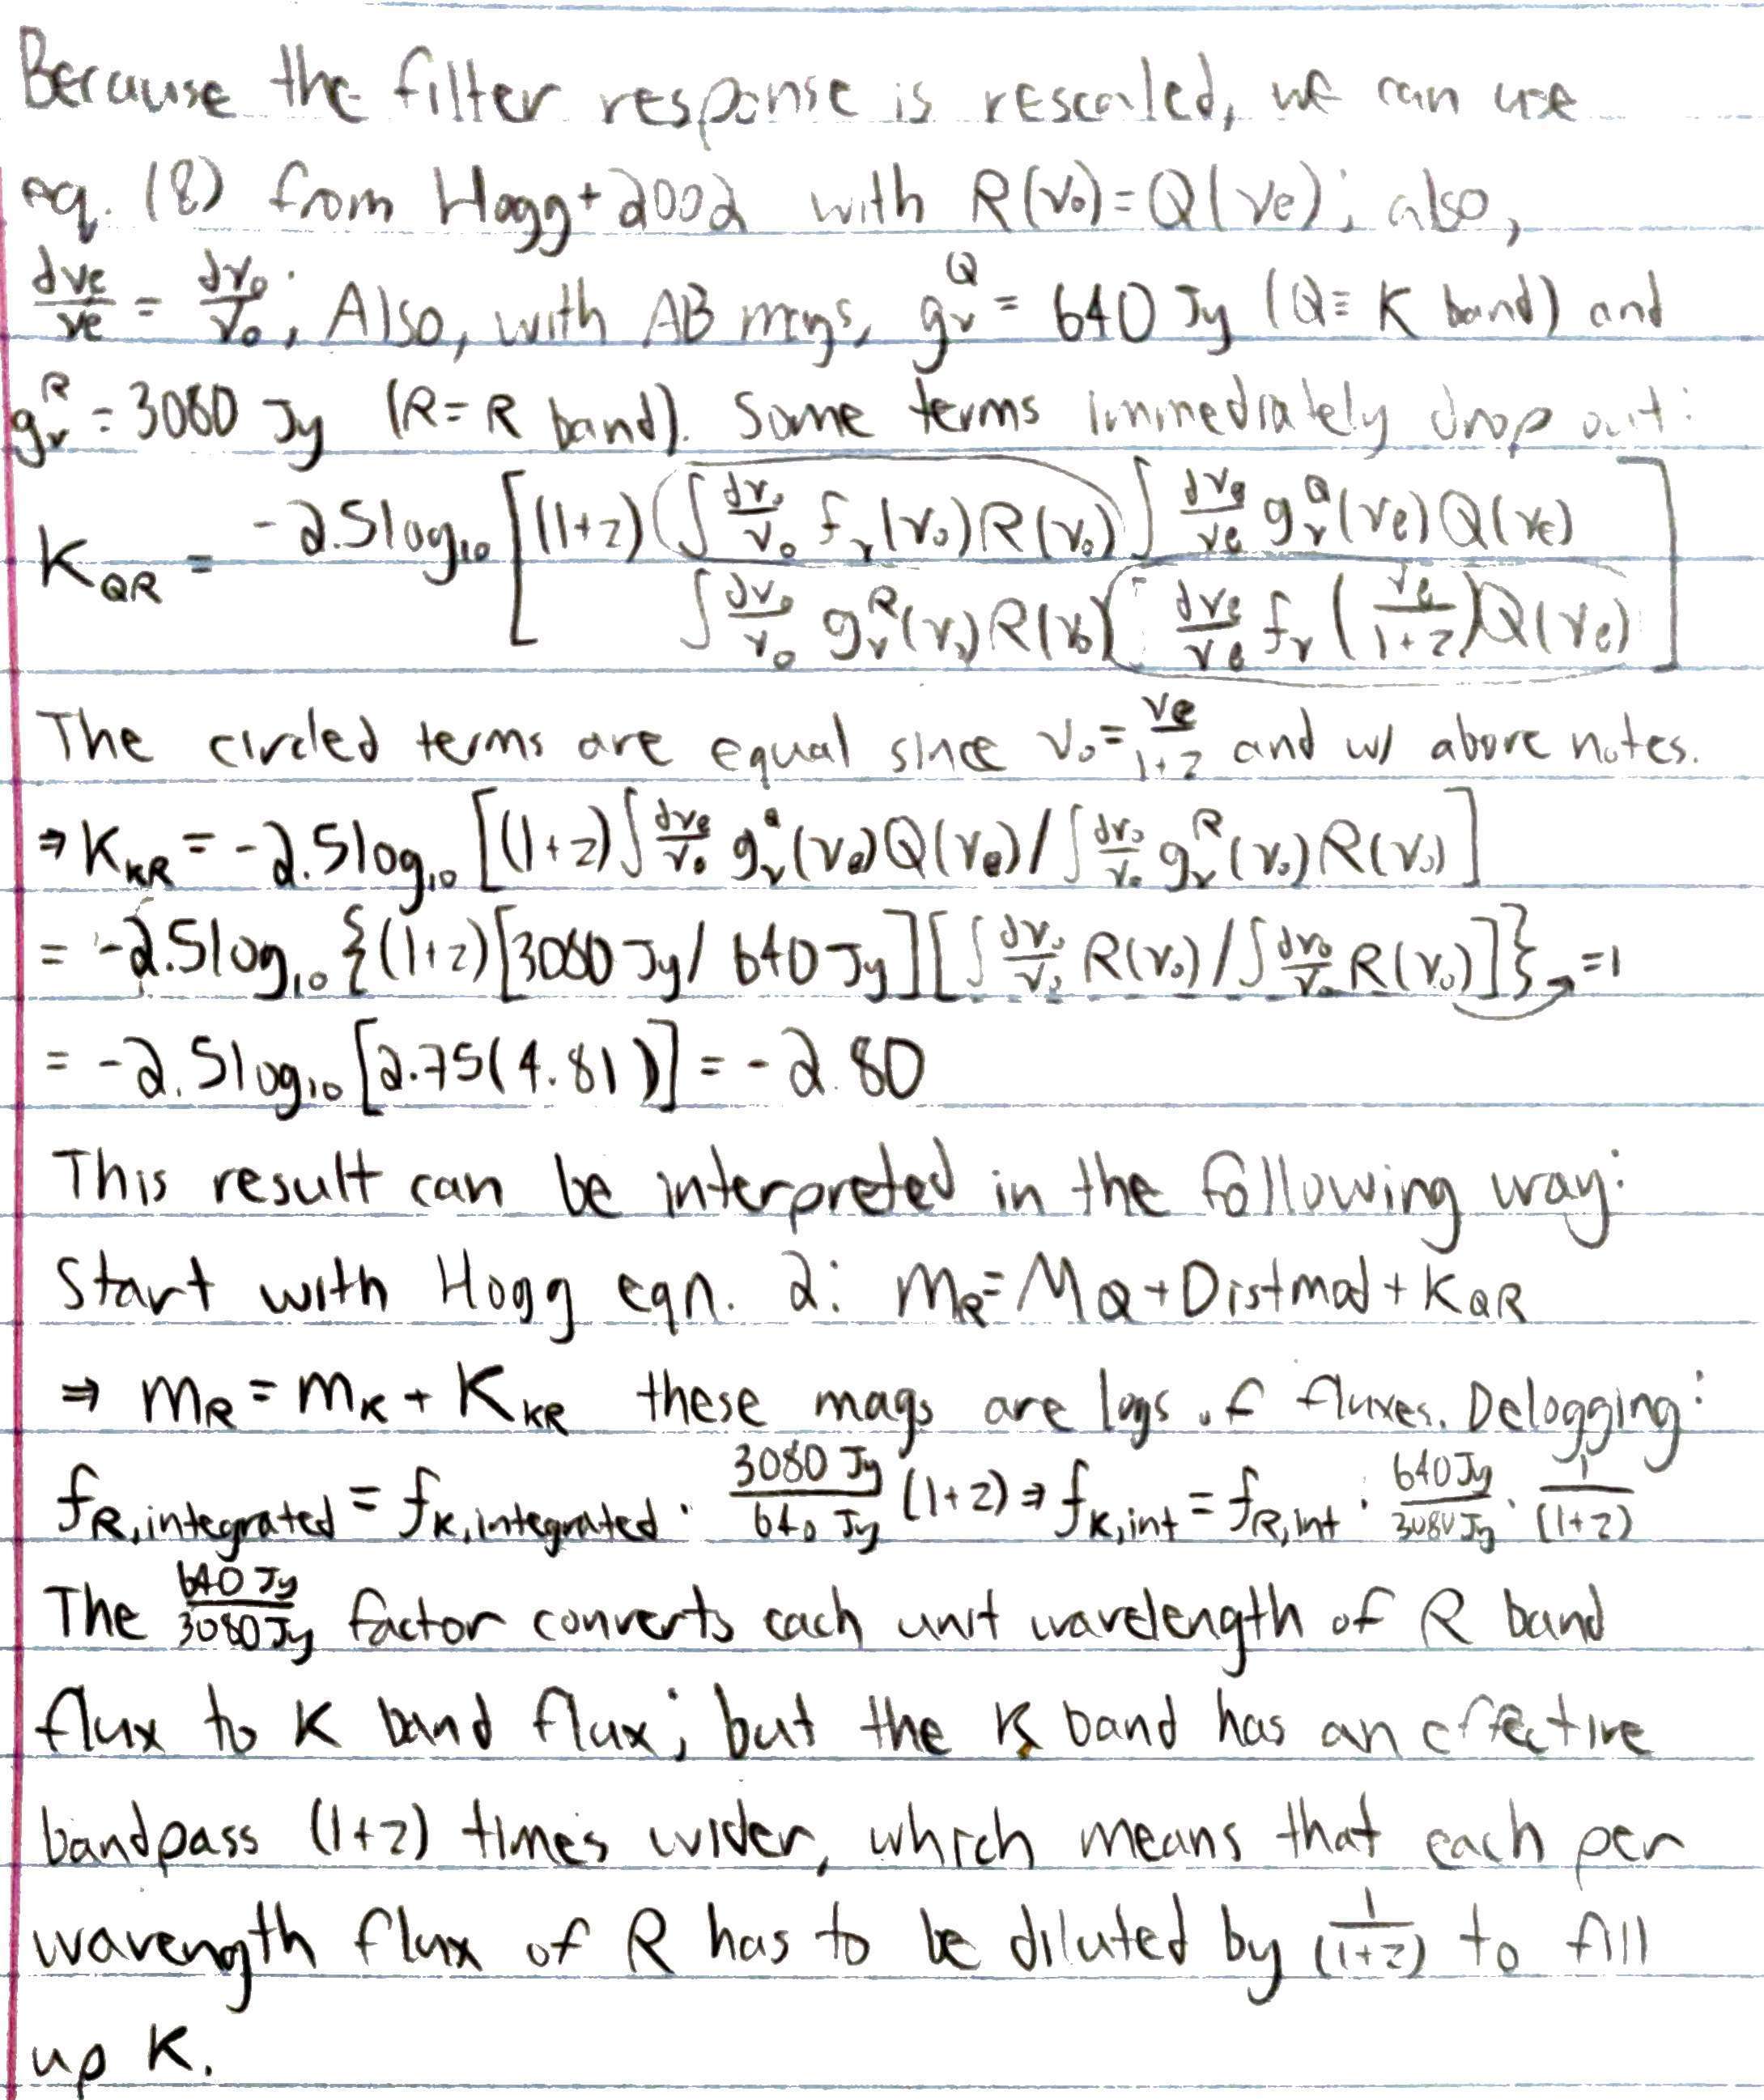 Because the filter response is rescaled, we can use
eq. (8) from Hogg+2002 with R(ν₀)=Q(νe); also,
dνe/νe = dν₀/ν₀; Also, with AB mags, gν^Q = 640 Jy (Q≡ K band) and
gν^R = 3080 Jy (R=R band). Some terms immediately drop out:
K_QR = -2.5log₁₀ [ (1+z) (∫ dν₀/ν₀ fν(ν₀)R(ν₀)) ∫ dνe/νe gν^Q(νe)Q(νe) / ∫ dν₀/ν₀ gν^R(ν₀)R(ν₀) (∫ dνe/νe fν(νe/(1+z))Q(νe)) ]
The circled terms are equal since ν₀=νe/(1+z) and w/ above notes.
⇒ K_KR = -2.5log₁₀ [(1+z)∫ dνe/ν₀ gν^Q(νe)Q(νe) / ∫ dν₀/ν₀ gν^R(ν₀)R(ν₀)]
= -2.5log₁₀ {(1+z)[3080 Jy/ 640 Jy][∫ dν₀/ν₀ R(ν₀) / ∫ dν₀/ν₀ R(ν₀)]} → =1
= -2.5log₁₀ [2.75(4.81)] = -2.80
This result can be interpreted in the following way:
Start with Hogg eqn. 2: m_R=M_Q+Distmod+K_QR
⇒ m_R = m_K + K_KR these mags are logs of fluxes. Delogging:
f_R,integrated = f_K,integrated · 3080 Jy/640 Jy (1+z) ⇒ f_K,int = f_R,int · 640 Jy/3080 Jy · 1/(1+z)
The 640 Jy/3080 Jy factor converts each unit wavelength of R band
flux to K band flux; but the K band has an effective
bandpass (1+z) times wider, which means that each per
wavength flux of R has to be diluted by 1/(1+z) to fill
up K.